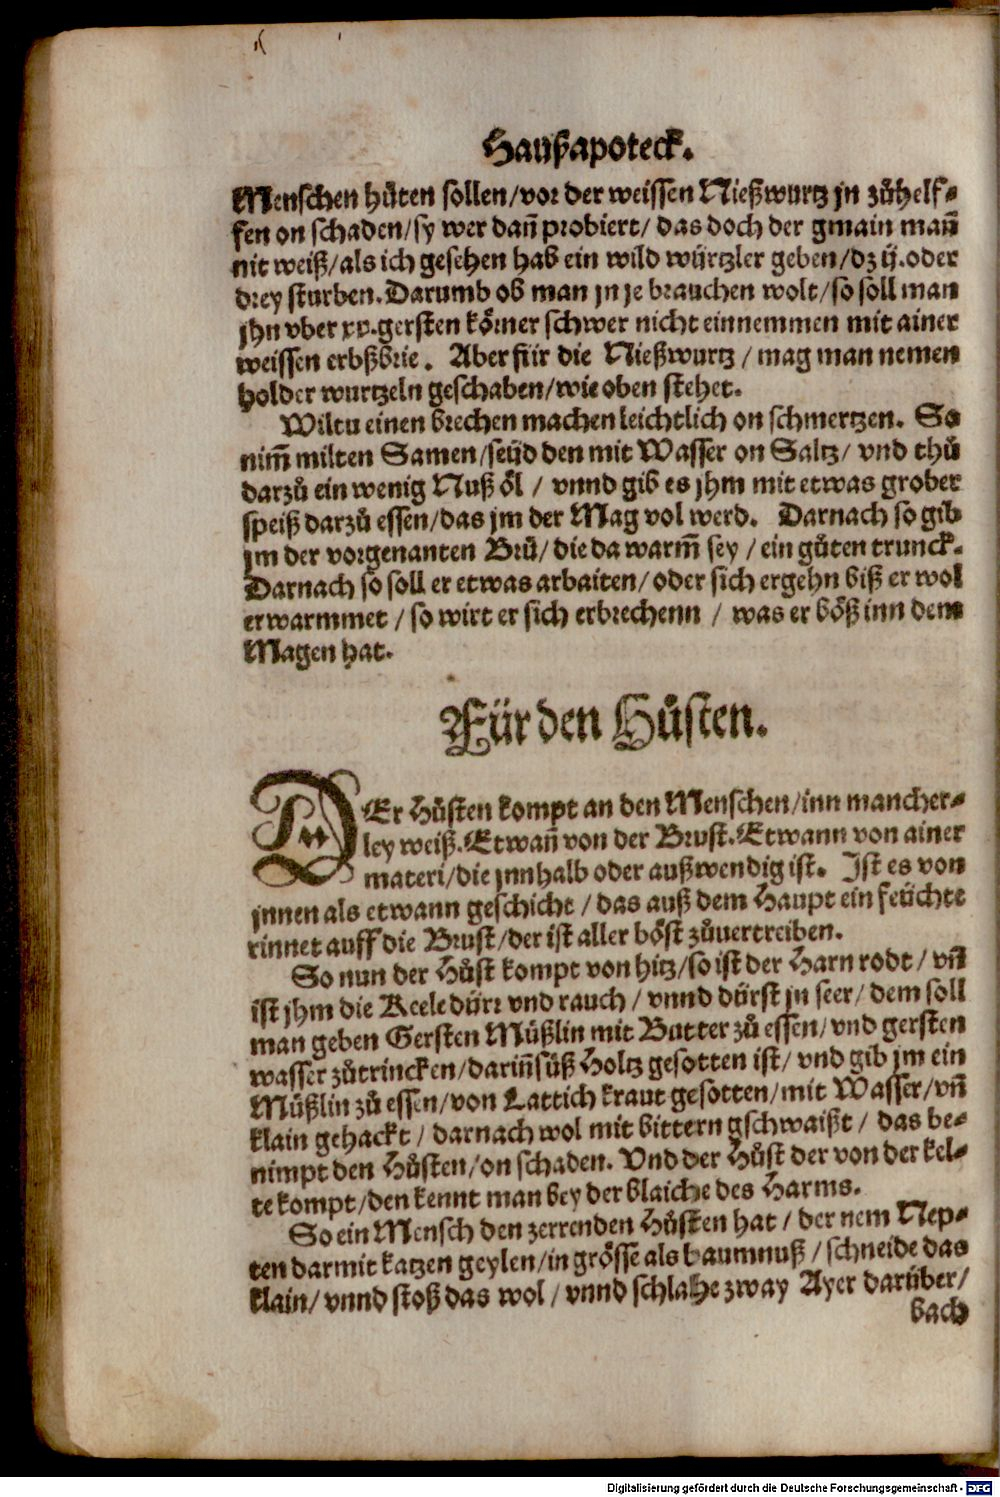 Haußapoteck.
Menschen hůten sollen/vor der weissen Nießwurtz jn zůhelf-
fen on schaden/sy wer dañ probiert/ das doch der gmain mañ
nit weiß/als ich gesehen hab ein wild würtzler geben/dz ij.oder
drey sturben.Darumb ob man jn je brauchen wolt/so soll man
jhn vber xv.gersten körner schwer nicht einnemmen mit ainer
weissen erbßbrie. Aber für die Nießwurtz/mag man nemen
holder wurtzeln geschaben/wie oben stehet.
Wiltu einen brechen machen leichtlich on schmertzen. So
nim̃ milten Samen/seüd den mit Wasser on Saltz/ vnd thů
darzů ein wenig Nuß öl / vnnd gib es jhm mit etwas grober
speiß darzů essen/das jm der Mag vol werd. Darnach so gib
jm der vorgenanten Brů/die da warm̃ sey/ein gůten trunck.
Darnach so soll er etwas arbaiten/oder sich ergehn biß er wol
erwarmmet/so wirt er sich erbrechenn / was er böß inn dem
Magen hat.
Für den Hůsten.
DEr Hůsten kompt an den Menschen/inn mancher-
ley weiß.Etwañ von der Brust.Etwann von ainer
materi/die jnnhalb oder außwendig ist. Ist es von
jnnen als etwann geschicht/das auß dem Haupt ein feüchte
rinnet auff die Brust/der ist aller böst zůuertreiben.
So nun der Hůst kompt von hitz/so ist der Harn rodt/vñ
ist jhm die Keele dürr vnd rauch/vnnd dürst jn seer/dem soll
man geben Gersten Můßlin mit Butter zů essen/vnd gersten
wasser zůtrincken/dariñ süß Holtz gesotten ist/ vnd gib jm ein
Můßlin zů essen/von Lattich kraut gesotten/mit Wasser/vñ
klain gehackt / darnach wol mit bittern gschwaißt / das be-
nimpt den Hůsten/on schaden. Vnd der Hůst der von der kel-
te kompt/den kennt man bey der blaiche des Harms.
So ein Mensch den zerrenden Hůsten hat/der nem Nep-
ten darmit katzen geylen/in grösse als baumnuß/schneide das
klain/vnnd stoß das wol/vnnd schlahe zway Ayer darüber/
bach
Digitalisierung gefördert durch die Deutsche Forschungsgemeinschaft - DFG